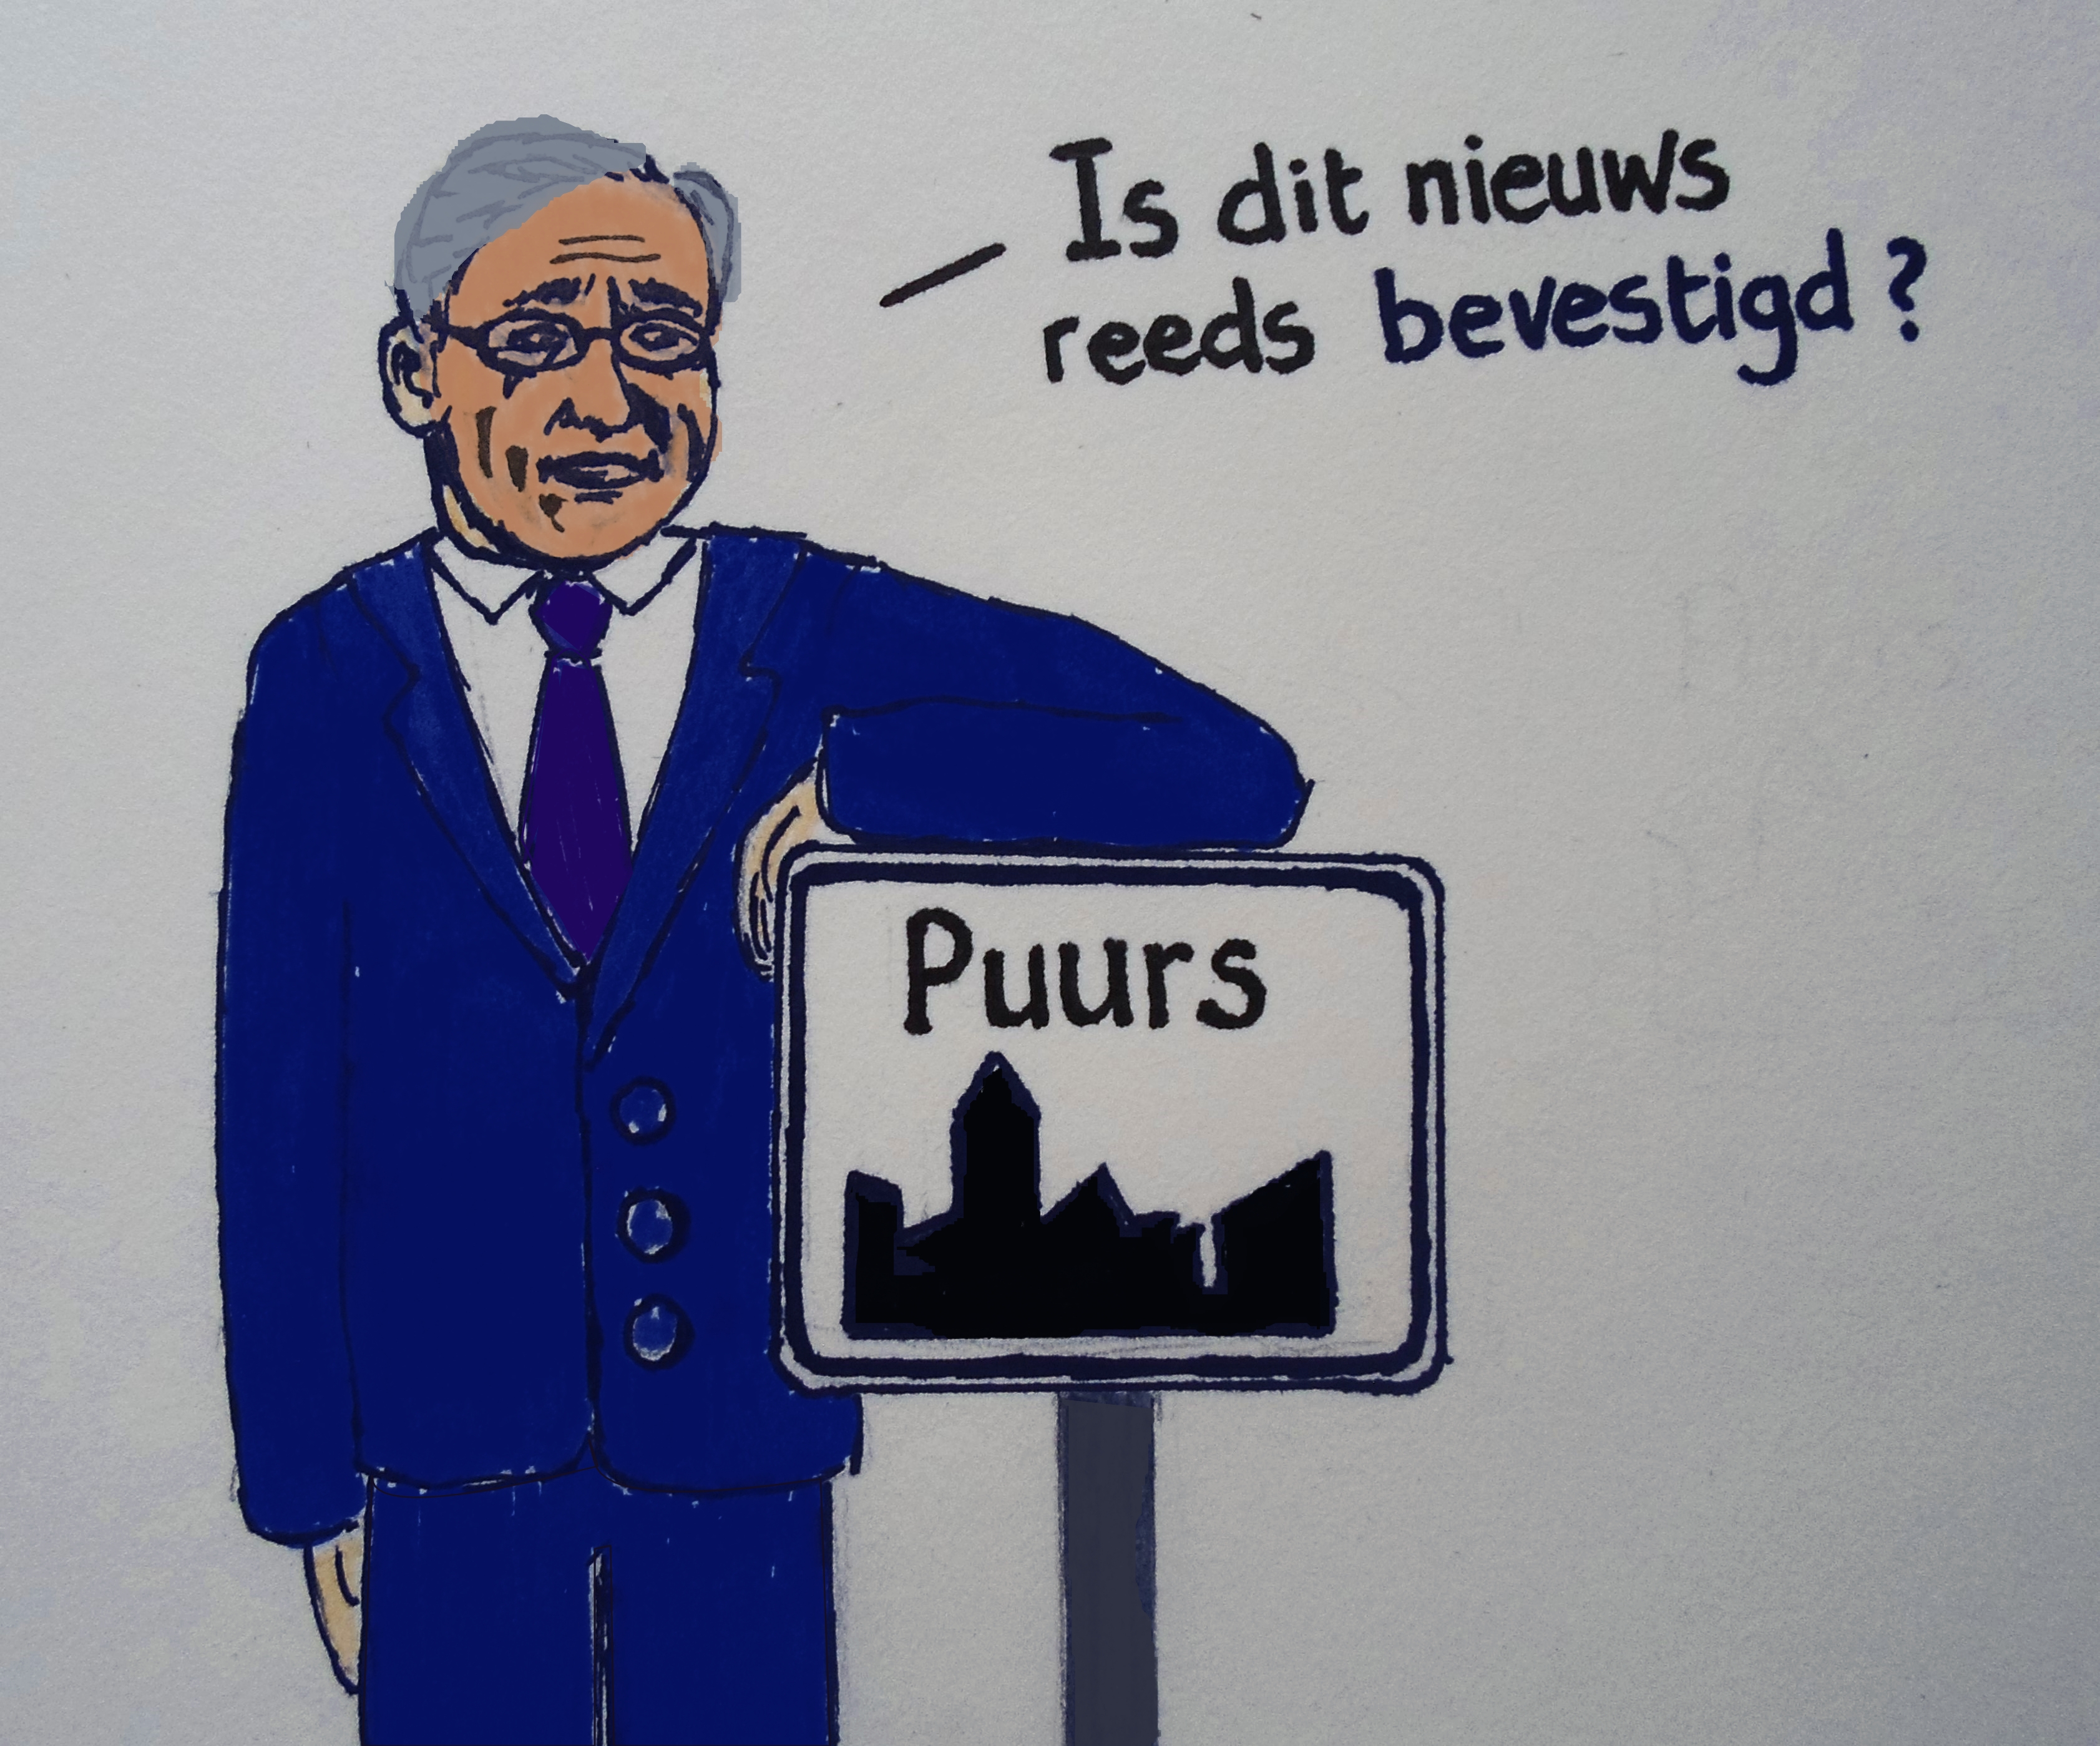 Is dit nieuws
reeds bevestigd?
Puurs